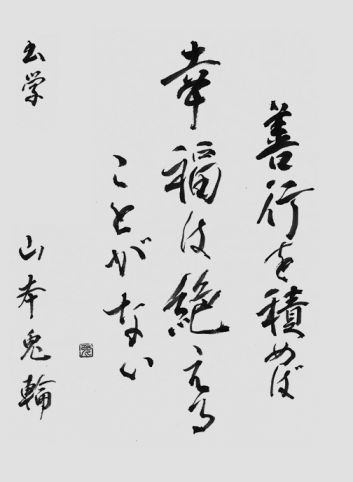 善行を積めば
幸福は絶える
ことがない
玄学 山本鬼輪